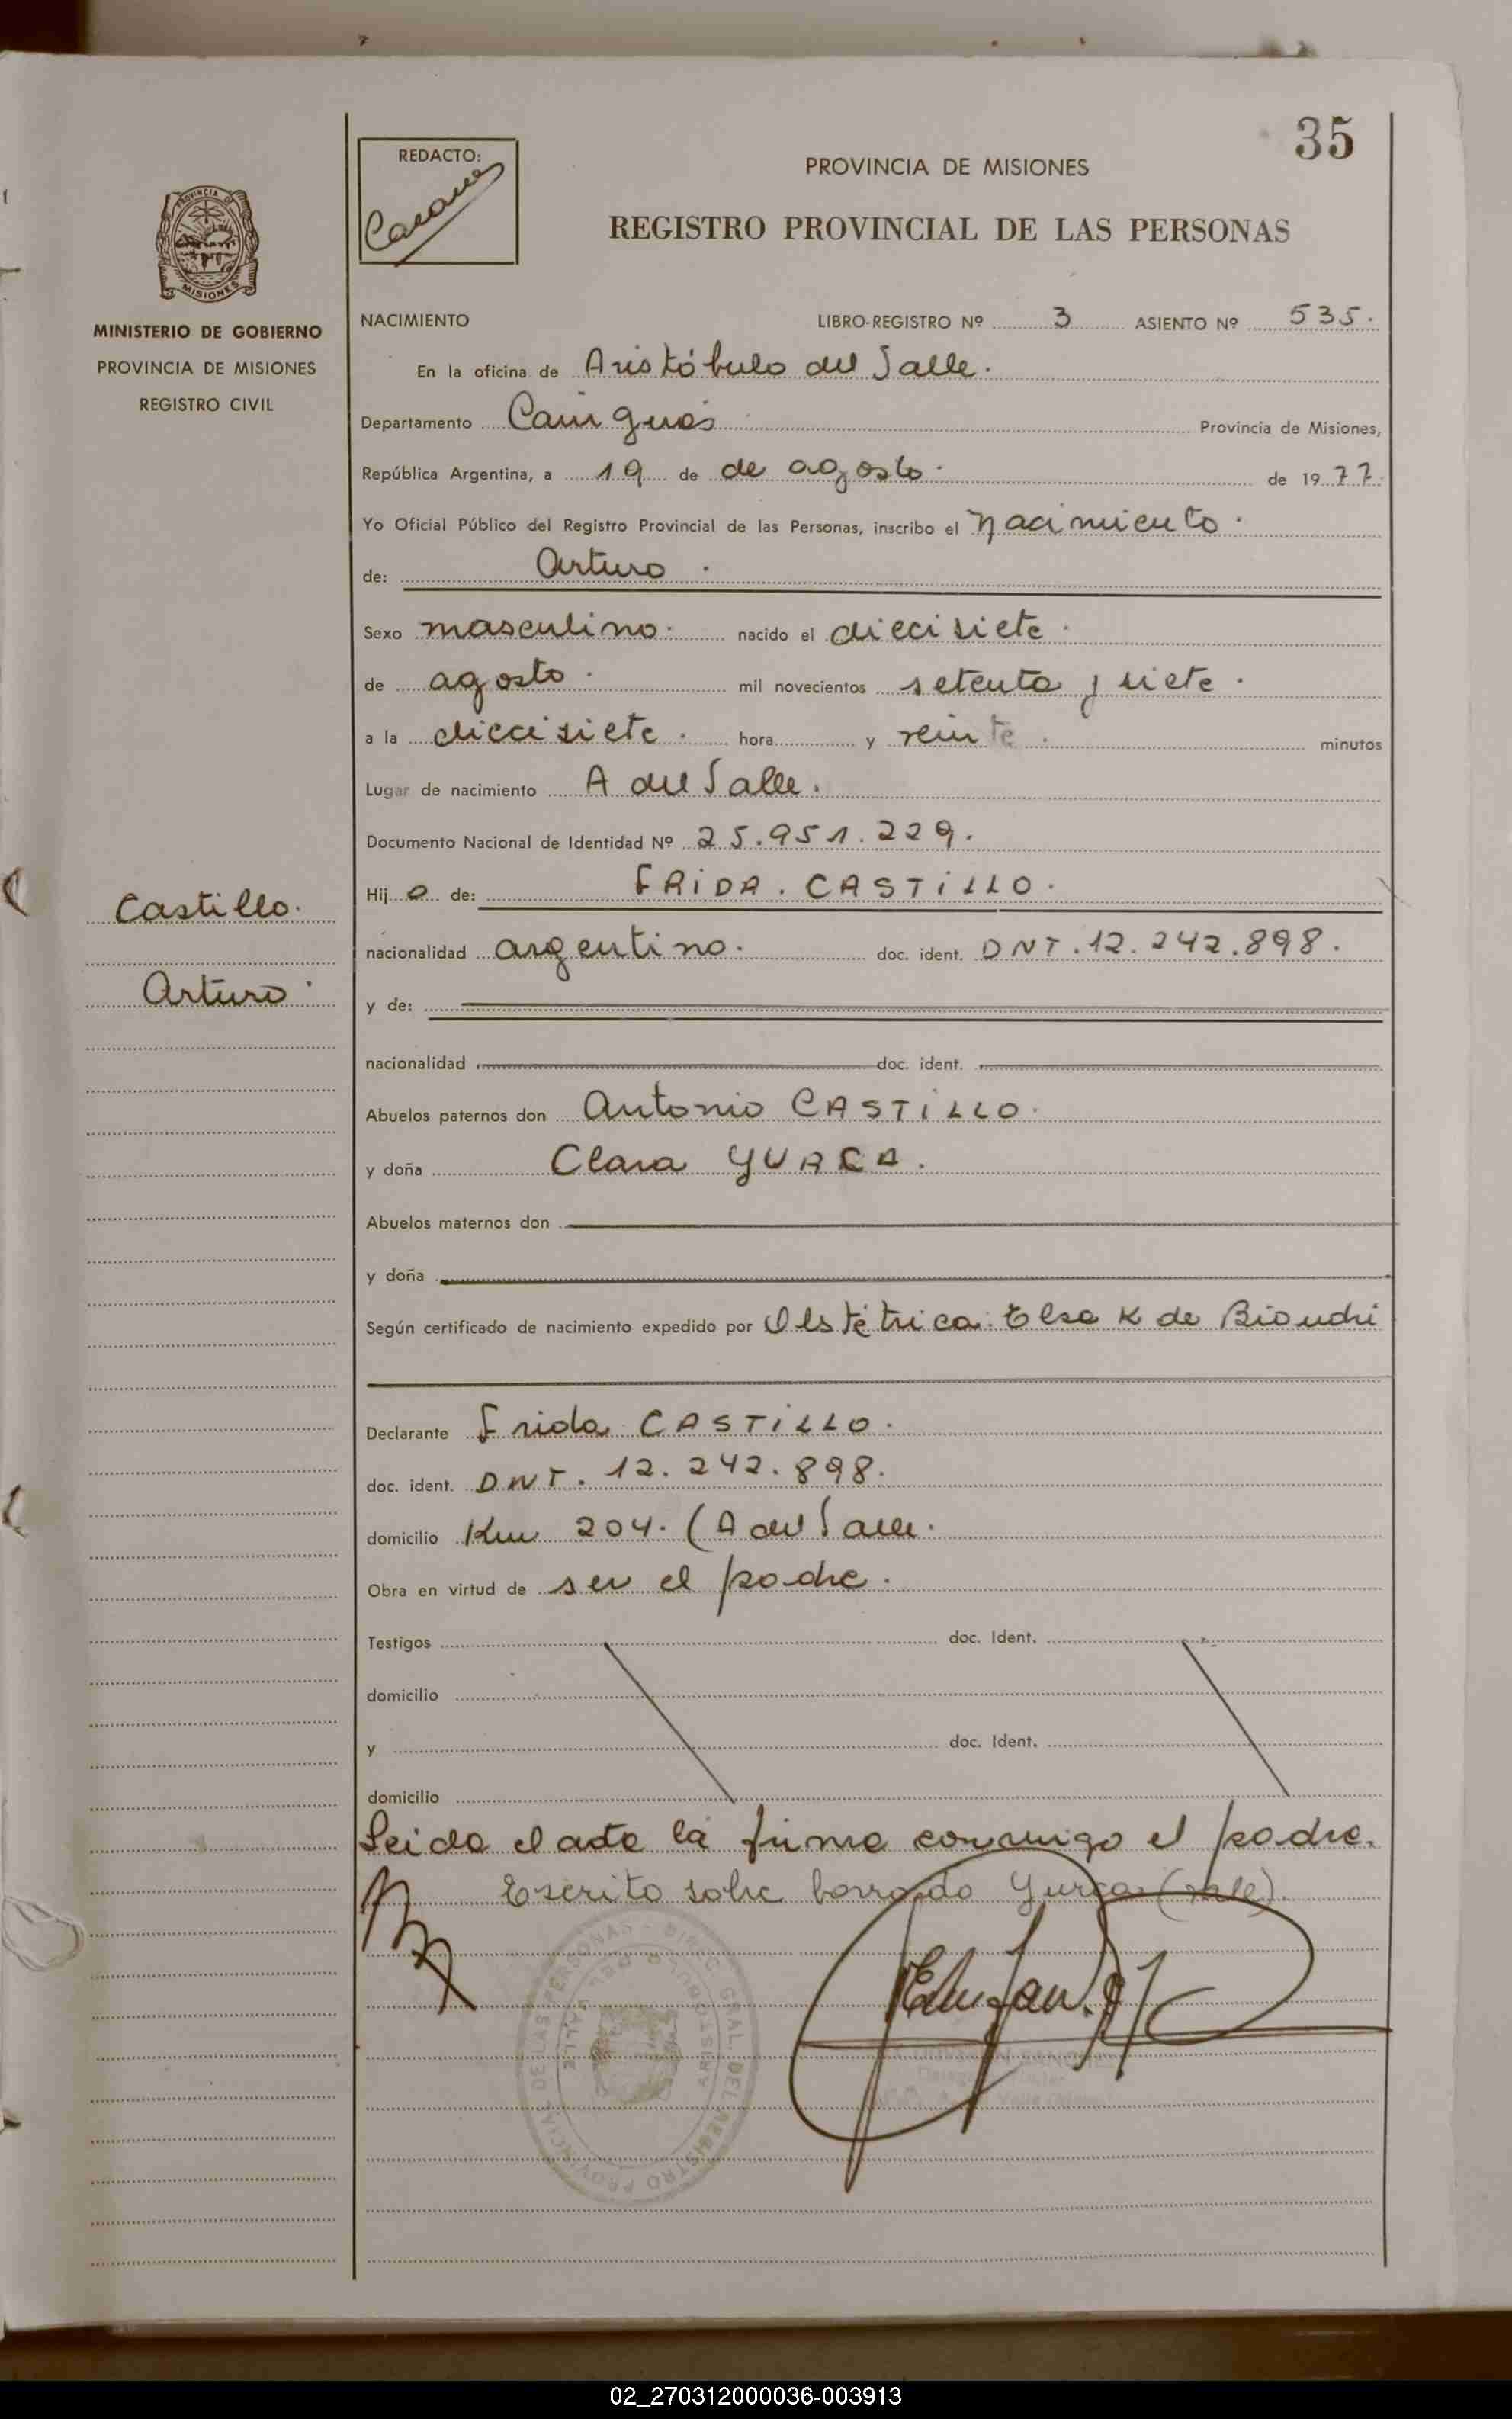 35
REDACTO:
PROVINCIA DE MISIONES
REGISTRO PROVINCIAL DE LAS PERSONAS
PROVINCIA DE
MISIONES
MINISTERIO DE GOBIERNO
PROVINCIA DE MISIONES
REGISTRO CIVIL
NACIMIENTO LIBRO-REGISTRO Nº 3 ASIENTO Nº 535.
En la oficina de Aristóbulo del Valle.
Departamento Cainguás Provincia de Misiones,
República Argentina, a 19 de de agosto. de 1977.
Yo Oficial Público del Registro Provincial de las Personas, inscribo el Nacimiento.
de: Arturo.
Sexo masculino. nacido el diecisiete.
de agosto. mil novecientos setenta y siete.
a la diecisiete. hora y veinte. minutos
Lugar de nacimiento A del Valle.
Documento Nacional de Identidad Nº 25.951.229.
Hijo de: FRIDA. CASTILLO.
Castillo.
nacionalidad argentino. doc. ident. DNT. 12.242.898.
Arturo.
y de:
nacionalidad doc. ident.
Abuelos paternos don Antonio CASTILLO.
y doña Clara YURCA.
Abuelos maternos don
y doña
Según certificado de nacimiento expedido por Obstétrica: Elsa K de Biondi
Declarante Frida CASTILLO.
doc. ident. DNT. 12.242.898.
domicilio Km 204. (A del Valle.
Obra en virtud de ser el padre.
Testigos doc. Ident.
domicilio
y doc. Ident.
domicilio
Leida el acta la firma conmigo el padre.
Escrito sobre borrado Yurca (vale).
DIREC. GRAL. DEL REGISTRO PROVINCIAL DE LAS PERSONAS
ARISTOBULO DEL VALLE
02_270312000036-003913